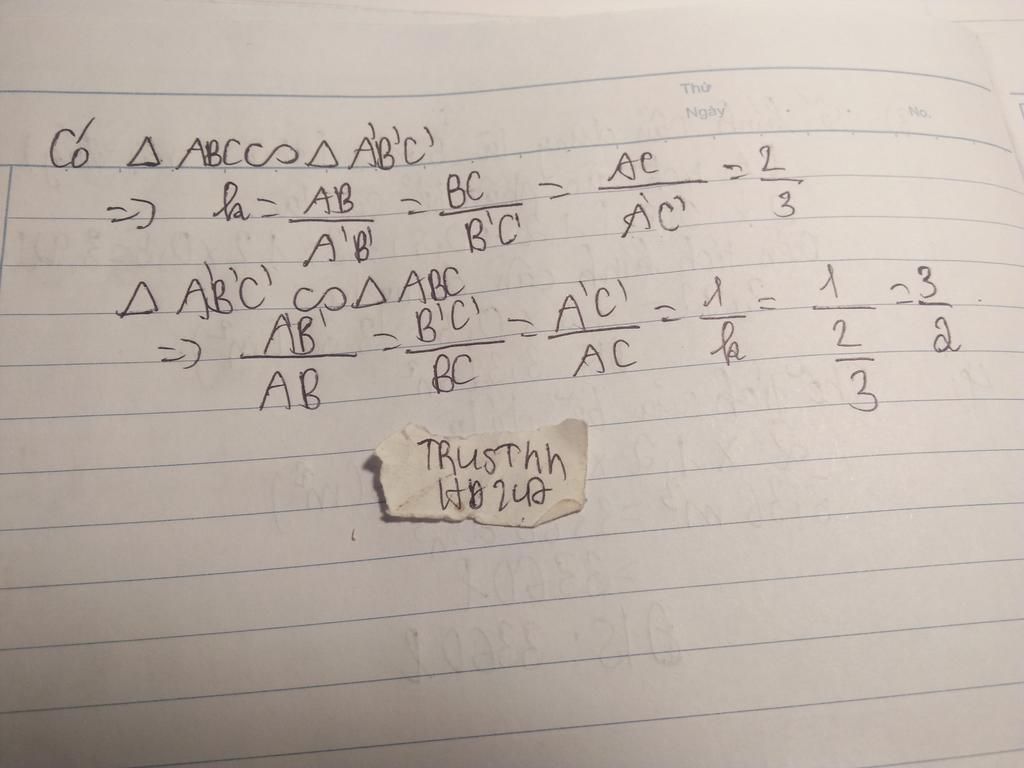 Thứ
Ngày
No.
Có Δ ABC ∽ Δ A'B'C'
=> k = AB/A'B' = BC/B'C' = AC/A'C' = 2/3
Δ A'B'C' ∽ Δ ABC
=> A'B'/AB = B'C'/BC = A'C'/AC = 1/k = 1/(2/3) = 3/2
TRUSThh